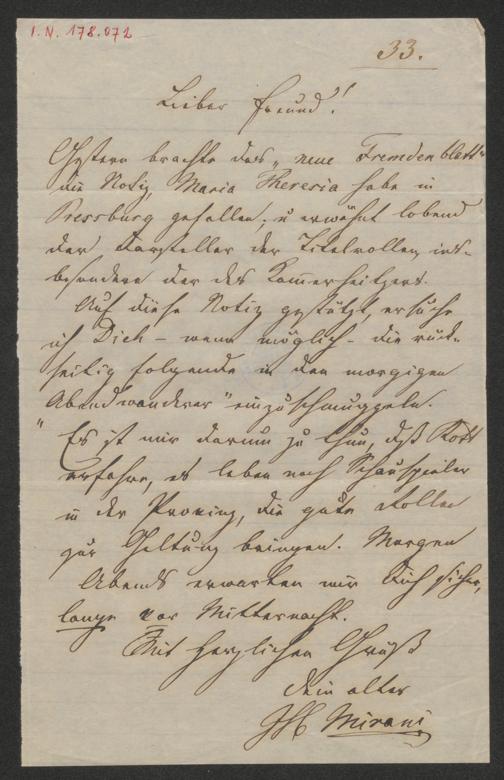 I. N. 178.072
33.
Lieber Freund!
Gestern brachte das „neue Fremdenblatt"
die Notiz, Maria Theresia habe in
Pressburg gefallen, u erwähnt lobend
der Darsteller der Titelrollen, ins-
besondere der des Kammerheitzers.
Auf diese Notiz gestützt, ersuche
ich Dich – wenn möglich – die rück-
seitig folgende in den morgigen
„Abendwanderer" einzuschmuggeln.
Es ist mir darum zu thun, daß Kott
erfahre, es leben noch Schauspieler
in der Provinz, die gute Rollen
zur Geltung bringen. Morgen
Abends erwarten wir Dich sicher,
lange vor Mitternacht.
Mit herzlichem Gruß
Dein alter
Mirani